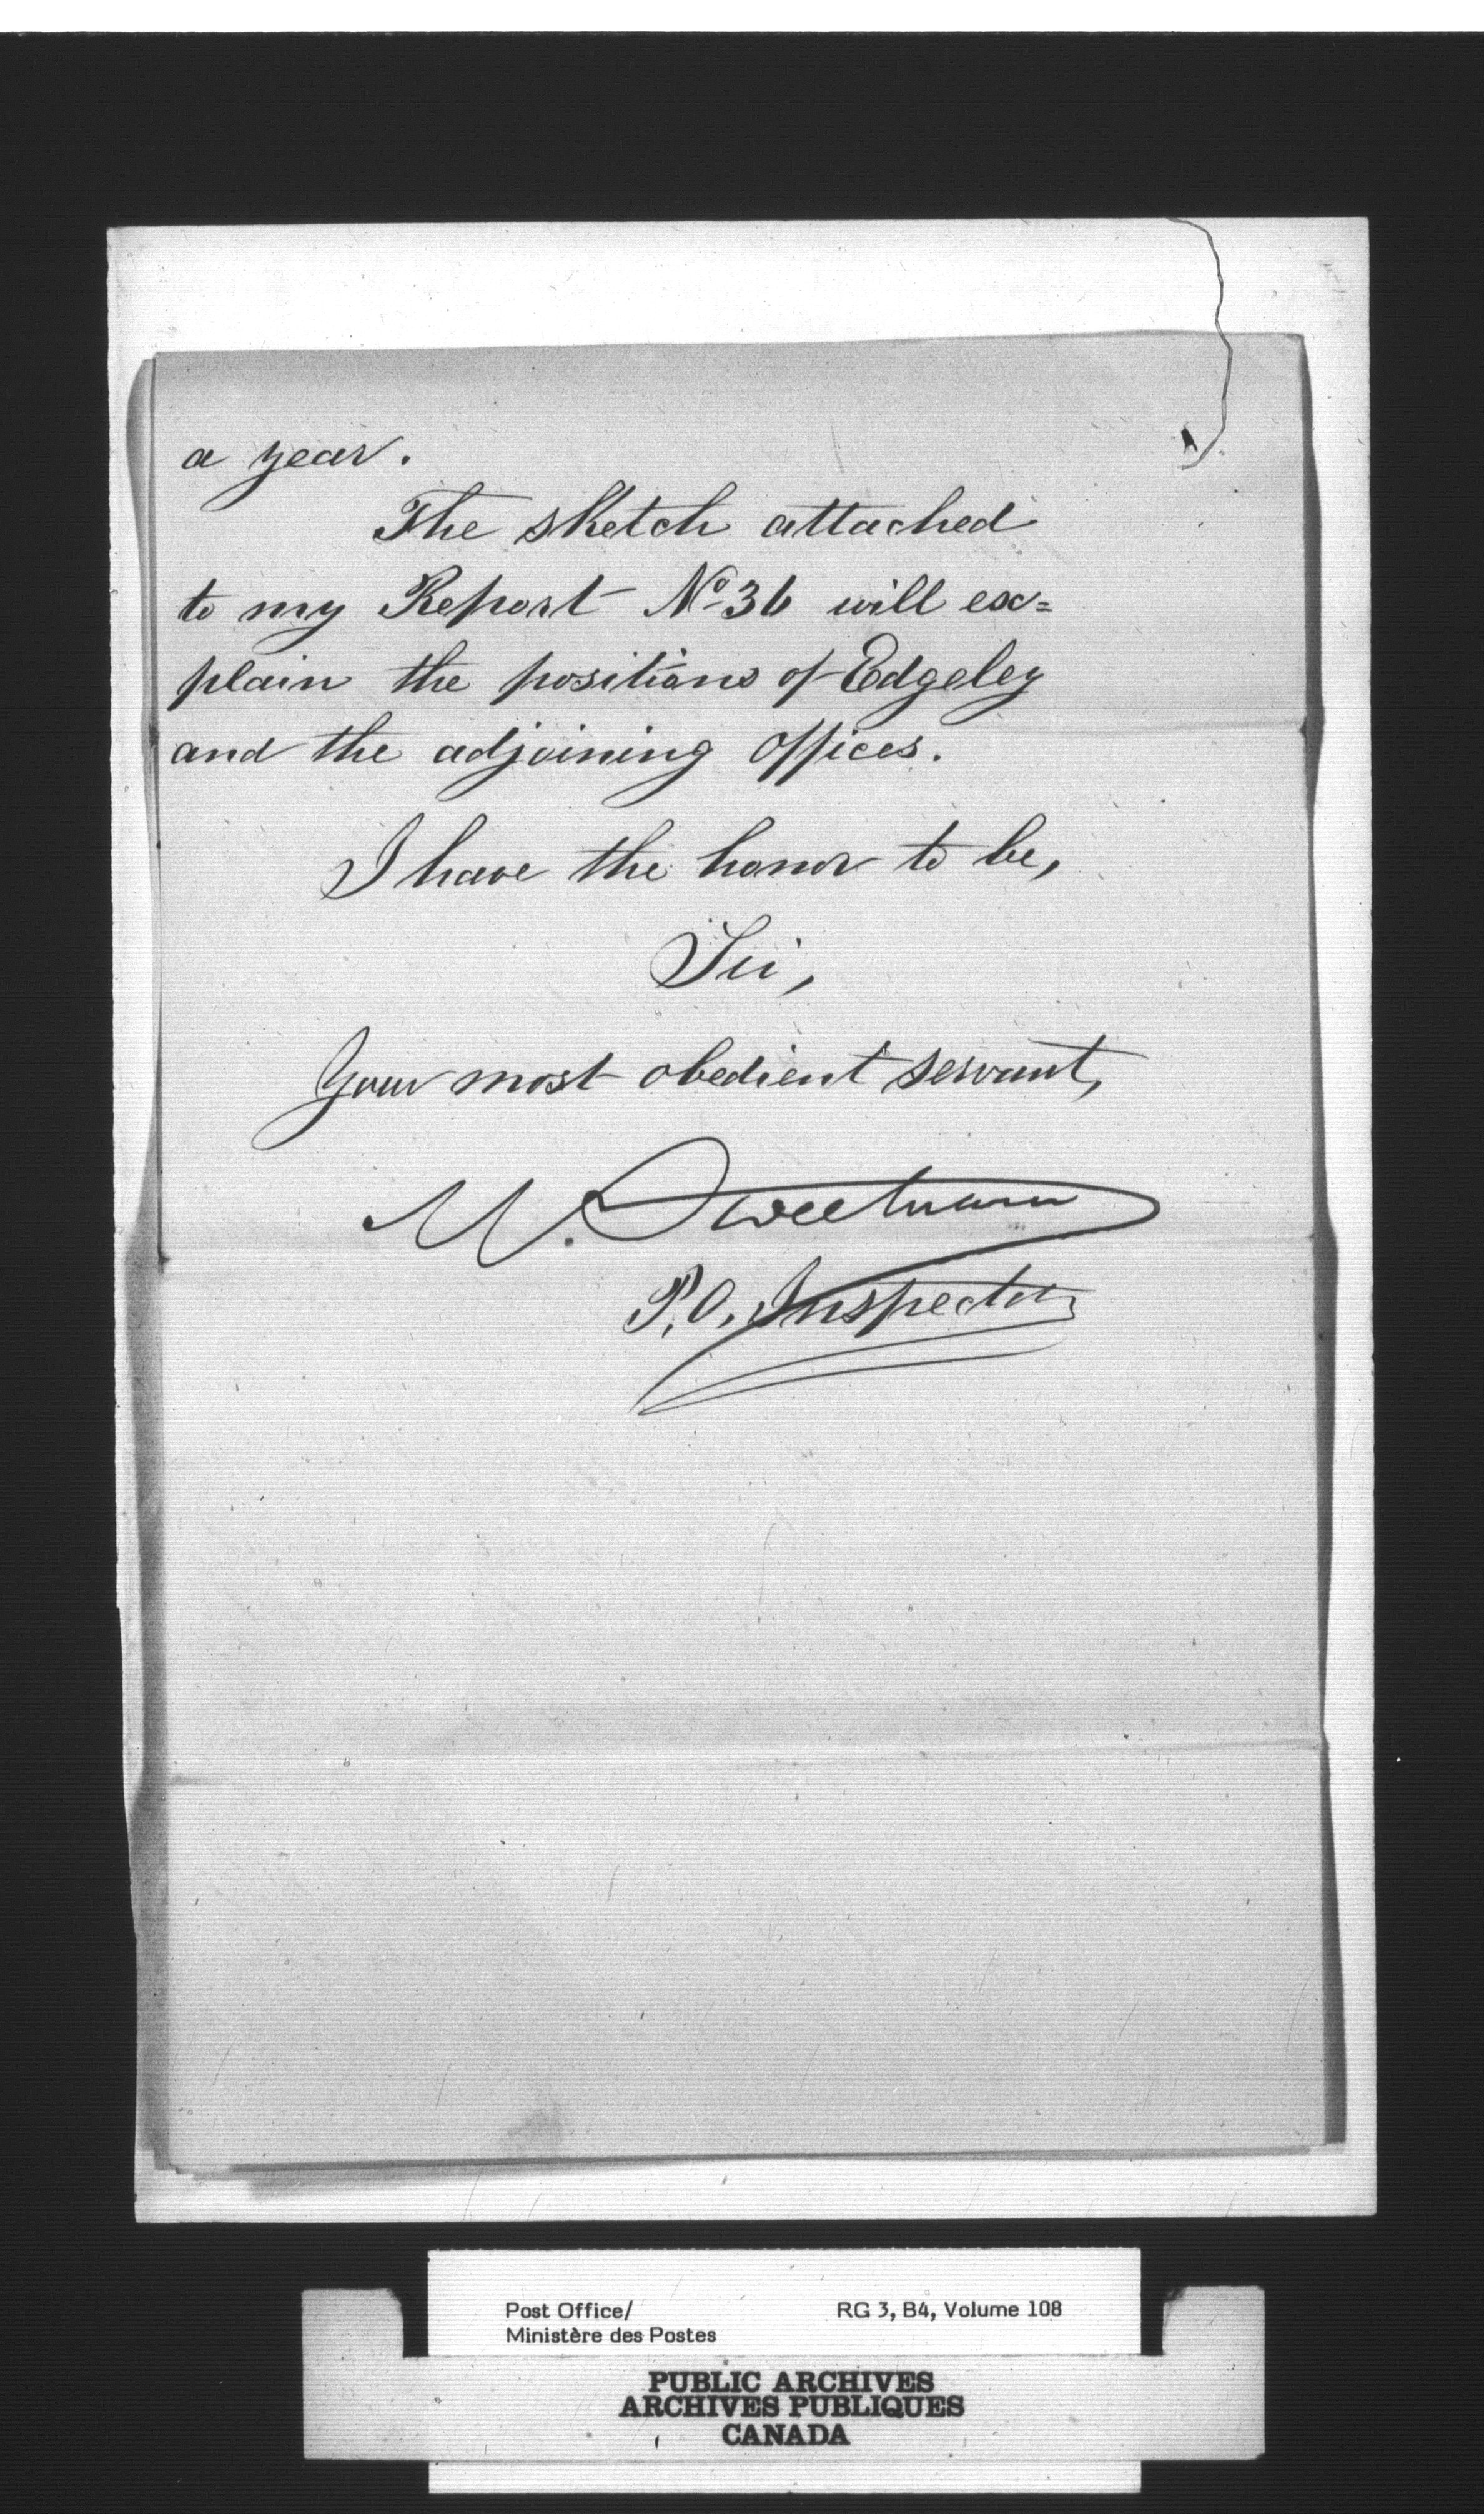 a year.
The sketch attached
to my Report No 36 will ex=
plain the positions of Edgeley
and the adjoining offices.
I have the honor to be,
Sir,
Your most obedient servant,
M. Sweetnam
P.O. Inspector
Post Office/ RG 3, B4, Volume 108
Ministère des Postes
PUBLIC ARCHIVES
ARCHIVES PUBLIQUES
CANADA